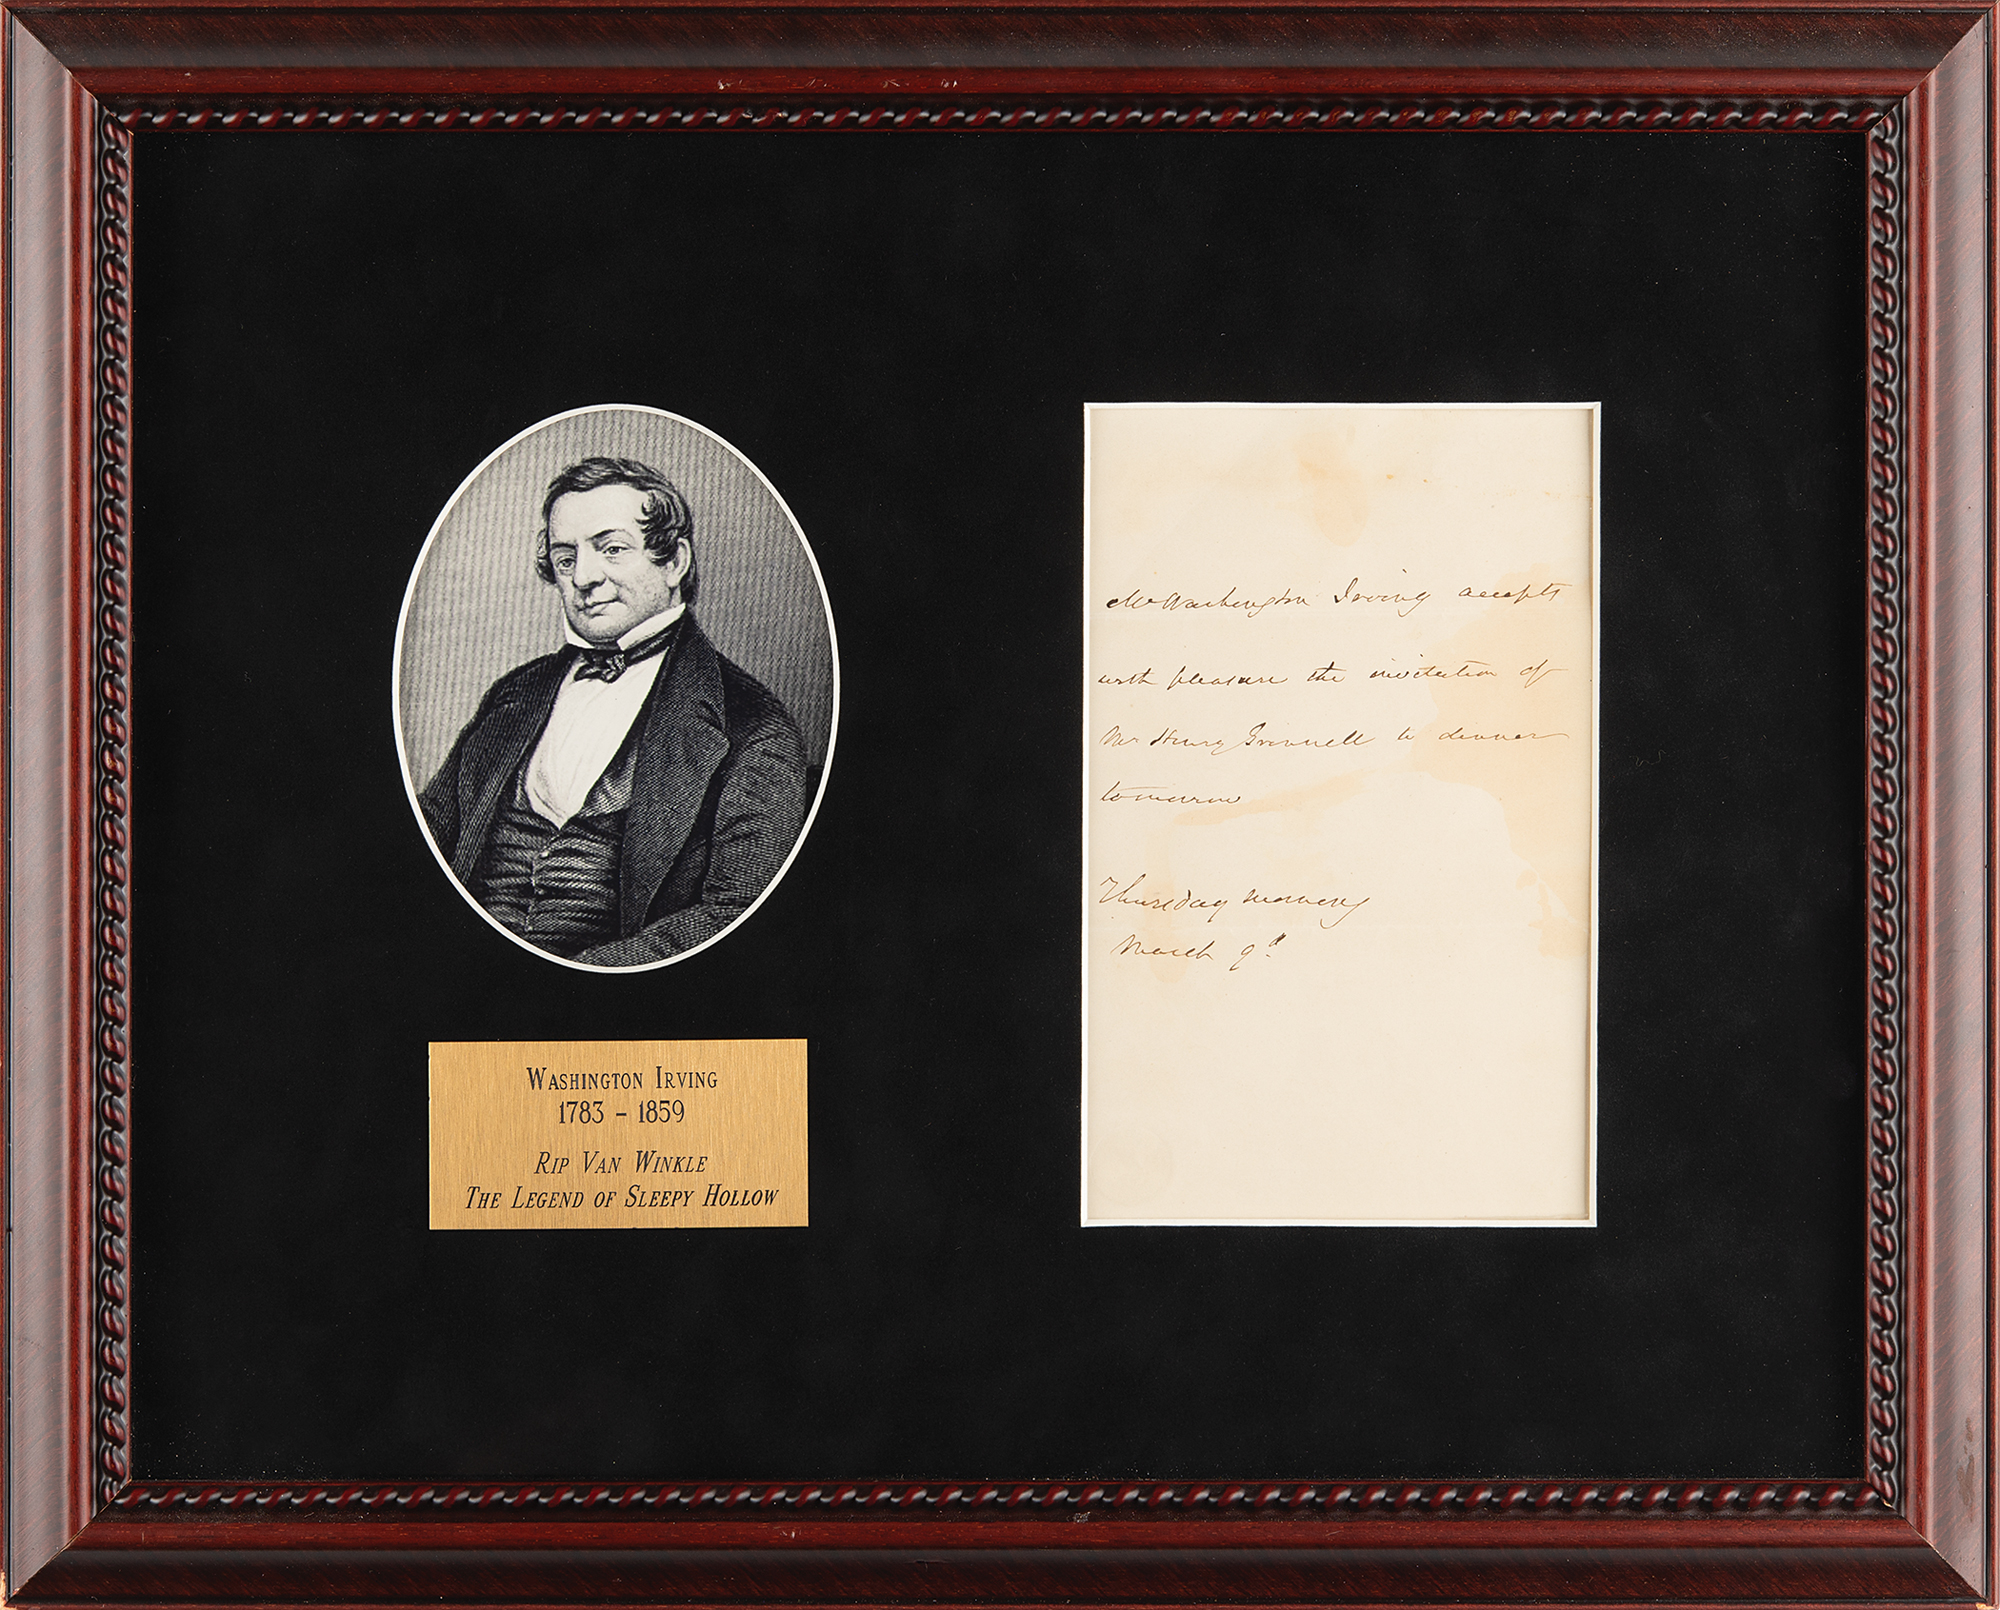 WASHINGTON IRVING
1783 – 1859
RIP VAN WINKLE
THE LEGEND OF SLEEPY HOLLOW
Mr Washington Irving accepts
with pleasure the invitation of
Mr Henry Grinnell to dinner
tomorrow
Thursday morning
March 9th